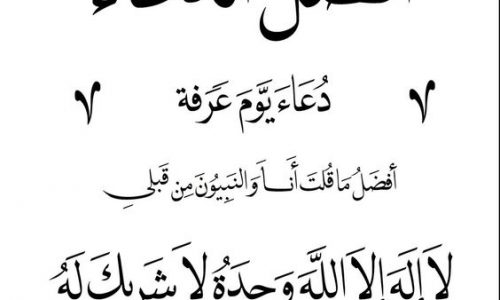 دُعَاءَ يَوَّمَ عَرَفة
أفضَلُ مَا قُلتَ أَنَاَ وَالنَبِيُونَ مِن قَبلي
لاَ إلَهَ إلاَ اللَّهَ وَحِدَةُ لاَ شَرِيكَ لَهُ